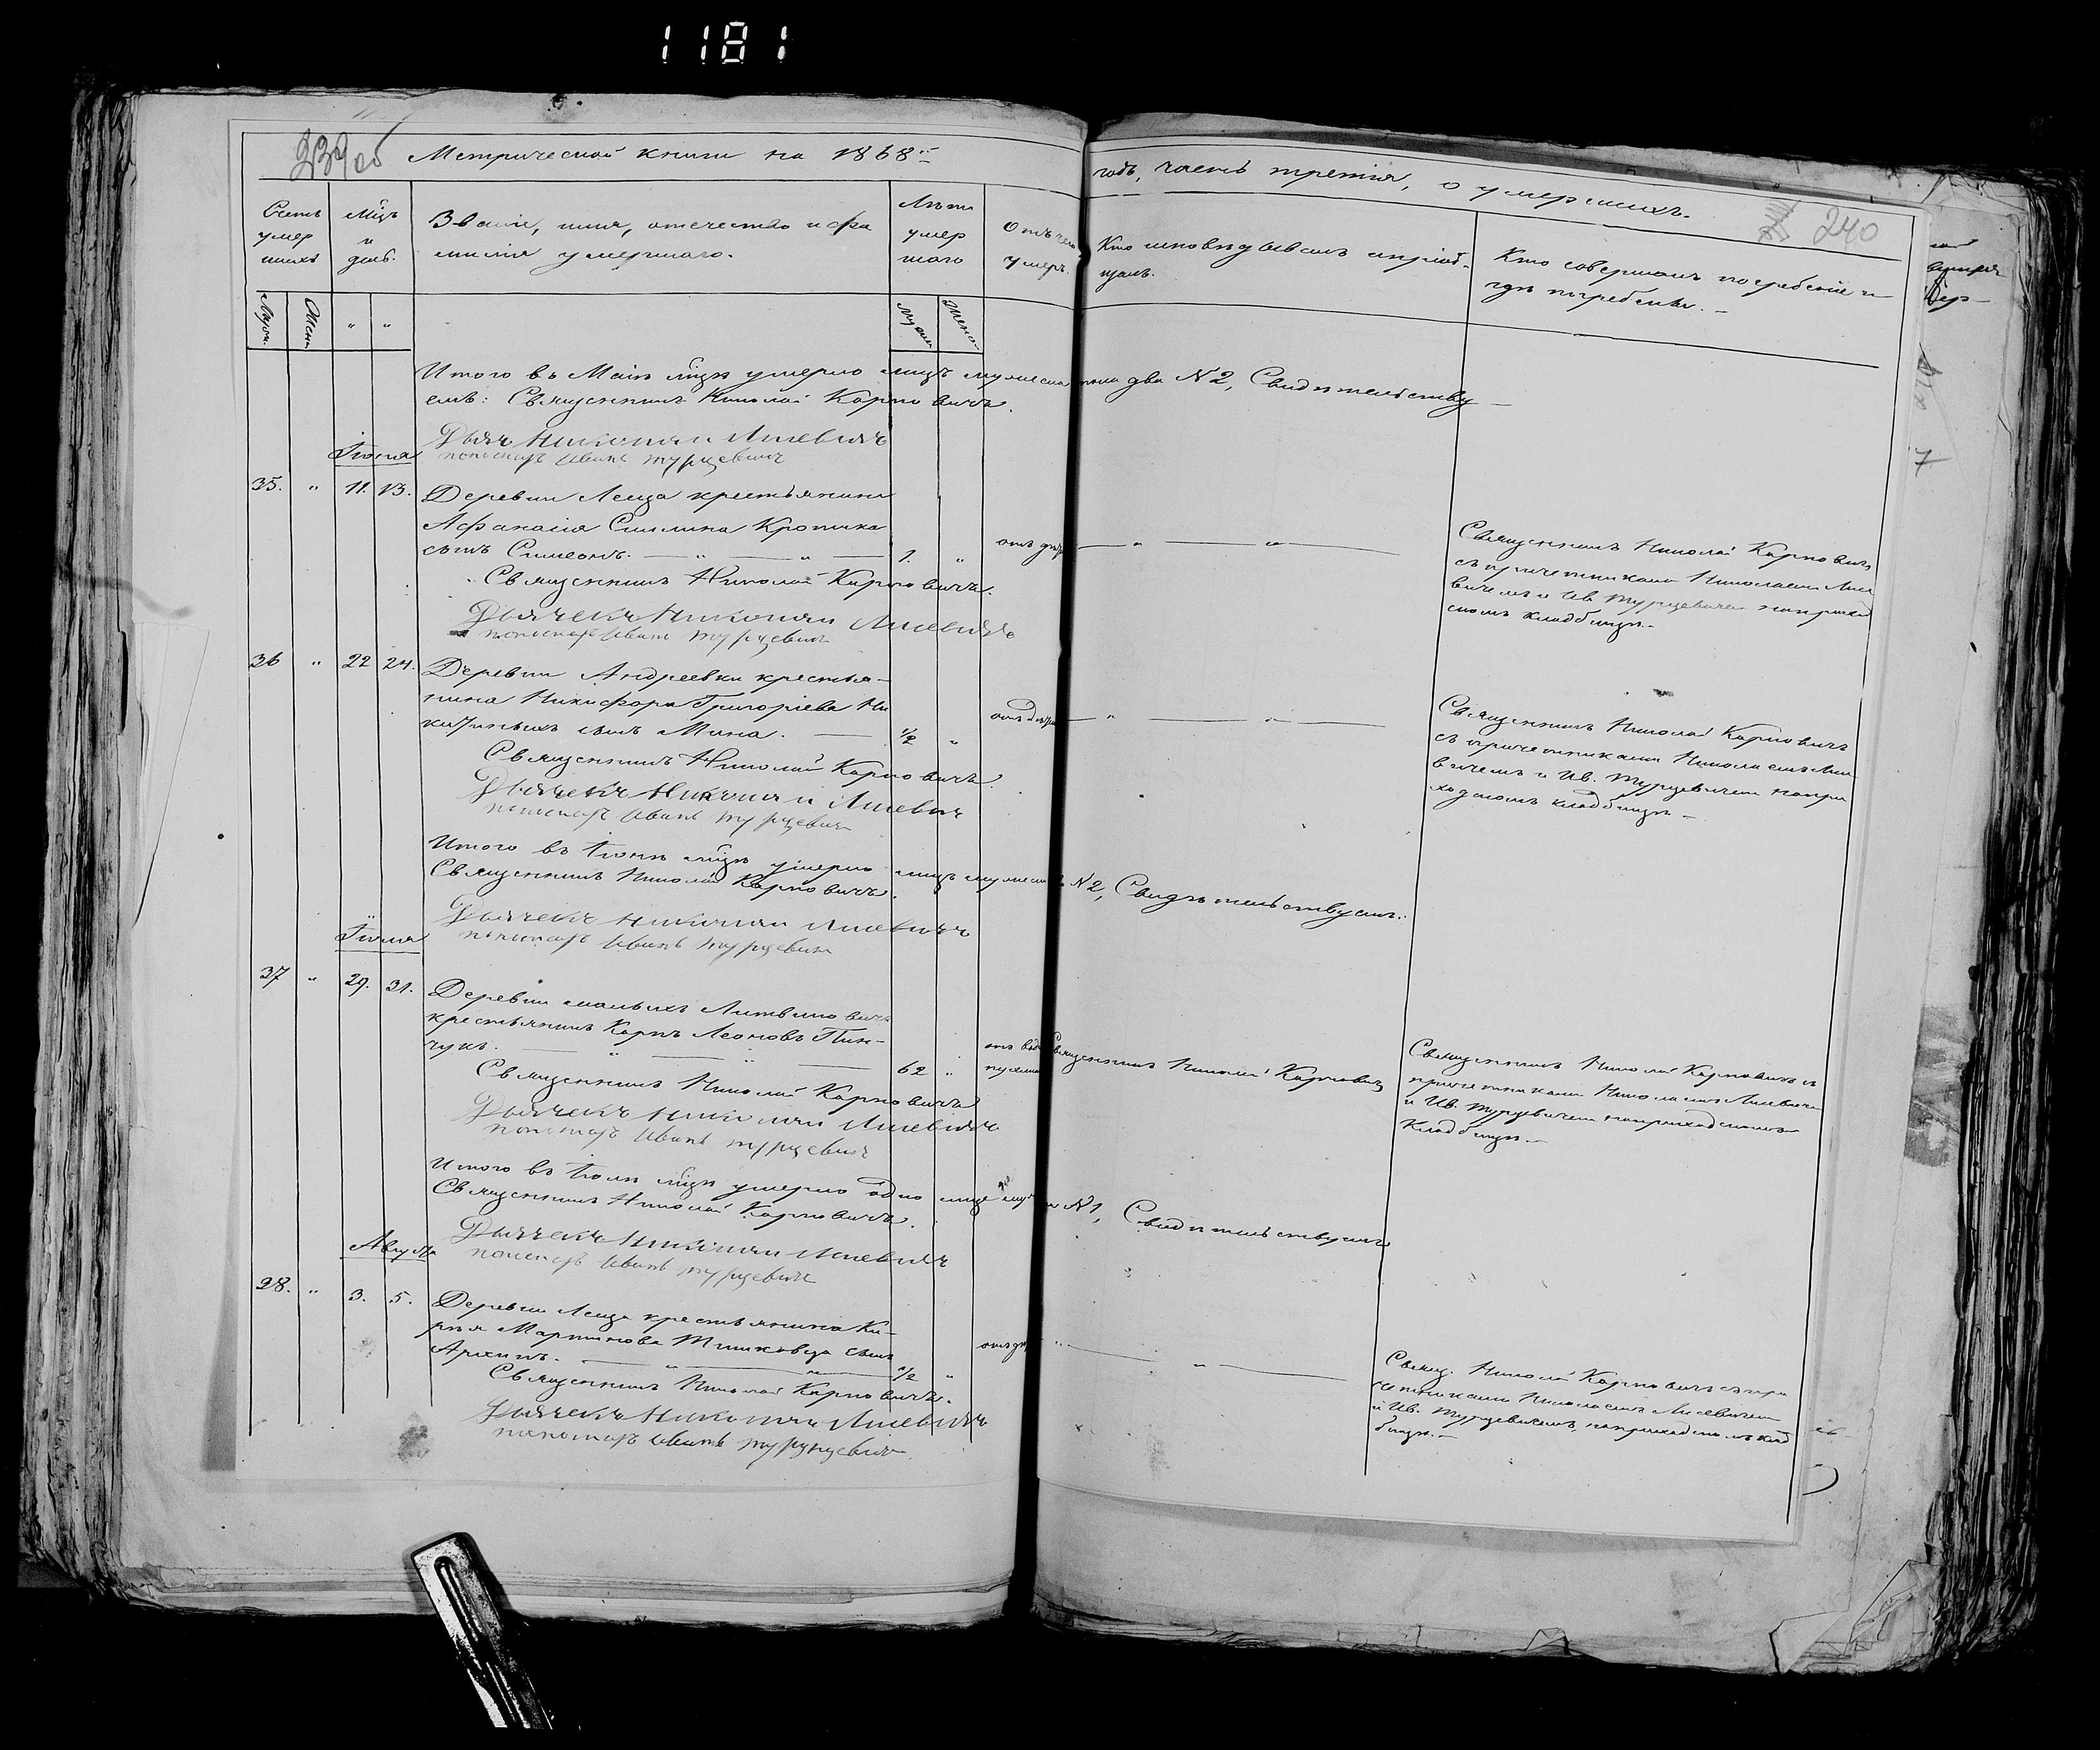 1181
239 об Метрической книги на 1868й
годъ, часть третія, о умершихъ.
240
Счетъ умершихъ
Мѣцъ и день.
Званіе, имя, отечество и фамилія умершаго.
Лѣта умершаго
Отъ чего умеръ.
Кто исповѣдывалъ и пріобщалъ.
Кто совершалъ погребеніе и гдѣ погребены.
Муж.
Жен.
"
"
Итого въ Маіѣ мѣцѣ умерло лицъ мужеска пола два N 2, Свидѣтельству
емъ: Священникъ Николай Карповичъ.
Дьячекъ Николай Лисевичъ
пономаръ Иванъ Турцевичъ
Іюня
35. " 11. 13. Деревни Лецца крестьянина
Афанасія
сынъ Симеонъ. 1. "
отъ
Священникъ Николай Карповичъ.
Дьячекъ Николай Лисевичъ
пономаръ Иванъ Турцевичъ
Священникъ Николай Карповичъ
съ причетниками Николаемъ Лисе
вичемъ и Ив. Турцевичемъ на приход
скомъ кладбищѣ.
36 " 22 24. Деревни Андреевки крестья-
нина Никифора Григоріева Ни
сынъ Мина. 1/2 "
отъ
Священникъ Николай Карповичъ.
Дьячекъ Николай Лисевичъ
пономаръ Иванъ Турцевичъ
Священникъ Николай Карповичъ
съ причетниками Николаемъ Лисе
вичемъ и Ив. Турцевичемъ на при
ходскомъ кладбищѣ
Итого въ Іюнѣ мѣцѣ умерло лицъ мужеска N 2, Свидѣтельствуемъ:
Священникъ Николай Карповичъ.
Дьячекъ Николай Лисевичъ
пономаръ Иванъ Турцевичъ
Іюля
37 " 29. 31. Деревни малыхъ Литвиновичъ
крестьянинъ Карпъ Леоновъ Пин-
чукъ. 62 "
отъ
Священникъ Николай Карповичъ
Священникъ Николай Карповичъ
Дьячекъ Николай Лисевичъ
пономаръ Иванъ Турцевичъ
Священникъ Николай Карповичъ съ
причетниками Николаемъ Лисевичемъ
и Ив. Турцевичемъ на приходскомъ
кладбищѣ.
Итого въ Іюлѣ мѣцѣ умерло одно лице N 1, Свидѣтельствуемъ
Священникъ Николай Карповичъ.
Дьячекъ Николай Лисевичъ
пономаръ Иванъ Турцевичъ
Августа
28. " 3. 5. Деревни Лецца крестьянина Ки-
рея Мартинова Тишковца сынъ
Архипъ. 1/2 "
отъ
Священникъ Николай Карповичъ.
Дьячекъ Николай Лисевичъ
пономаръ Иванъ Турцевичъ
Свящ. Николай Карповичъ съ при
четниками Николаемъ Лисевичемъ
и Ив. Турцевичемъ, на приходскомъ клад
бищѣ.